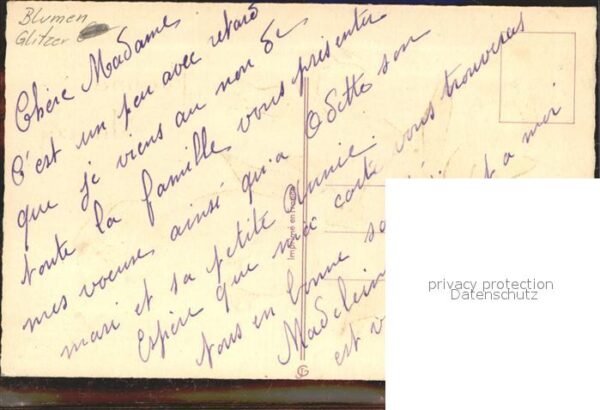 Blumen
Glitzer
Chère Madame
C'est un peu avec retard
que je viens au non de
toute la famille vous présenter
mes voeux ainsi qu'a Odette son
mari et sa petite Annie.
Espère que ma carte vous trouveras
tous en bonne
et a moi
Madelein
est
Imprimé en France
privacy protection
Datenschutz